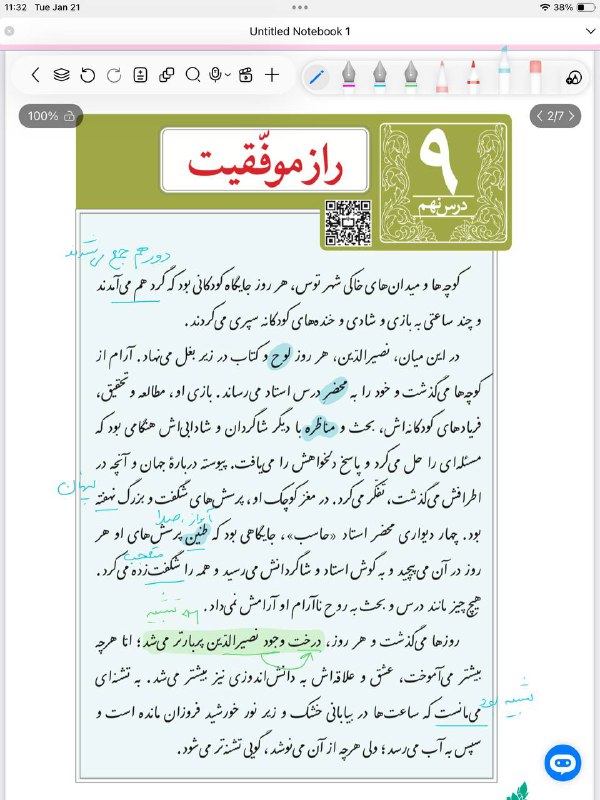 11:32 Tue Jan 21
38%
Untitled Notebook 1
100%
2/7
۹
درس نهم
راز موفّقیت
دور هم جمع می‌شدند
کوچه‌ها و میدان‌های خاکی شهر توس، هر روز جایگاه کودکانی بود که گرد هم می‌آمدند
و چند ساعتی به بازی و شادی و خنده‌های کودکانه سپری می‌کردند.
در این میان، نصیرالدّین، هر روز لوح و کتاب در زیر بغل می‌نهاد. آرام از
کوچه‌ها می‌گذشت و خود را به محضر درس استاد می‌رساند. بازی او، مطالعه و تحقیق،
فریادهای کودکانه‌اش، بحث و مناظره با دیگر شاگردان و شادابی‌اش هنگامی بود که
مسئله‌ای را حل می‌کرد و پاسخ دلخواهش را می‌یافت. پیوسته دربارهٔ جهان و آنچه در
پنهان
اطرافش می‌گذشت، تفکّر می‌کرد. در مغز کوچک او، پرسش‌های شگفت و بزرگ نهفته
آواز، صدا
بود. چهار دیواری محضر استاد «حاسب»، جایگاهی بود که طنین پرسش‌های او هر
متعجب
روز در آن می‌پیچید و به گوش استاد و شاگردانش می‌رسید و همه را شگفت‌زده می‌کرد.
هیچ چیز مانند درس و بحث به روح ناآرام او آرامش نمی‌داد.
تشبیه
روزها می‌گذشت و هر روز، درخت وجود نصیرالدّین پربارتر می‌شد؛ امّا هرچه
بیشتر می‌آموخت، عشق و علاقه‌اش به دانش‌اندوزی نیز بیشتر می‌شد. به تشنه‌ای
شبیه بود
می‌مانست که ساعت‌ها در بیابانی خشک و زیر نور خورشید فروزان مانده است و
سپس به آب می‌رسد؛ ولی هرچه از آن می‌نوشد، گویی تشنه‌تر می‌شود.